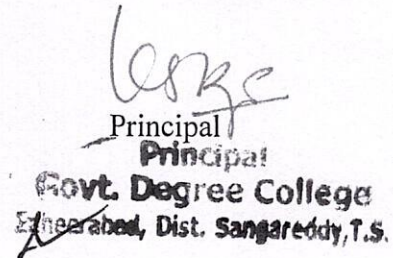 Principal
Principal
Govt. Degree College
Zaheerabad, Dist. Sangareddy,T.S.